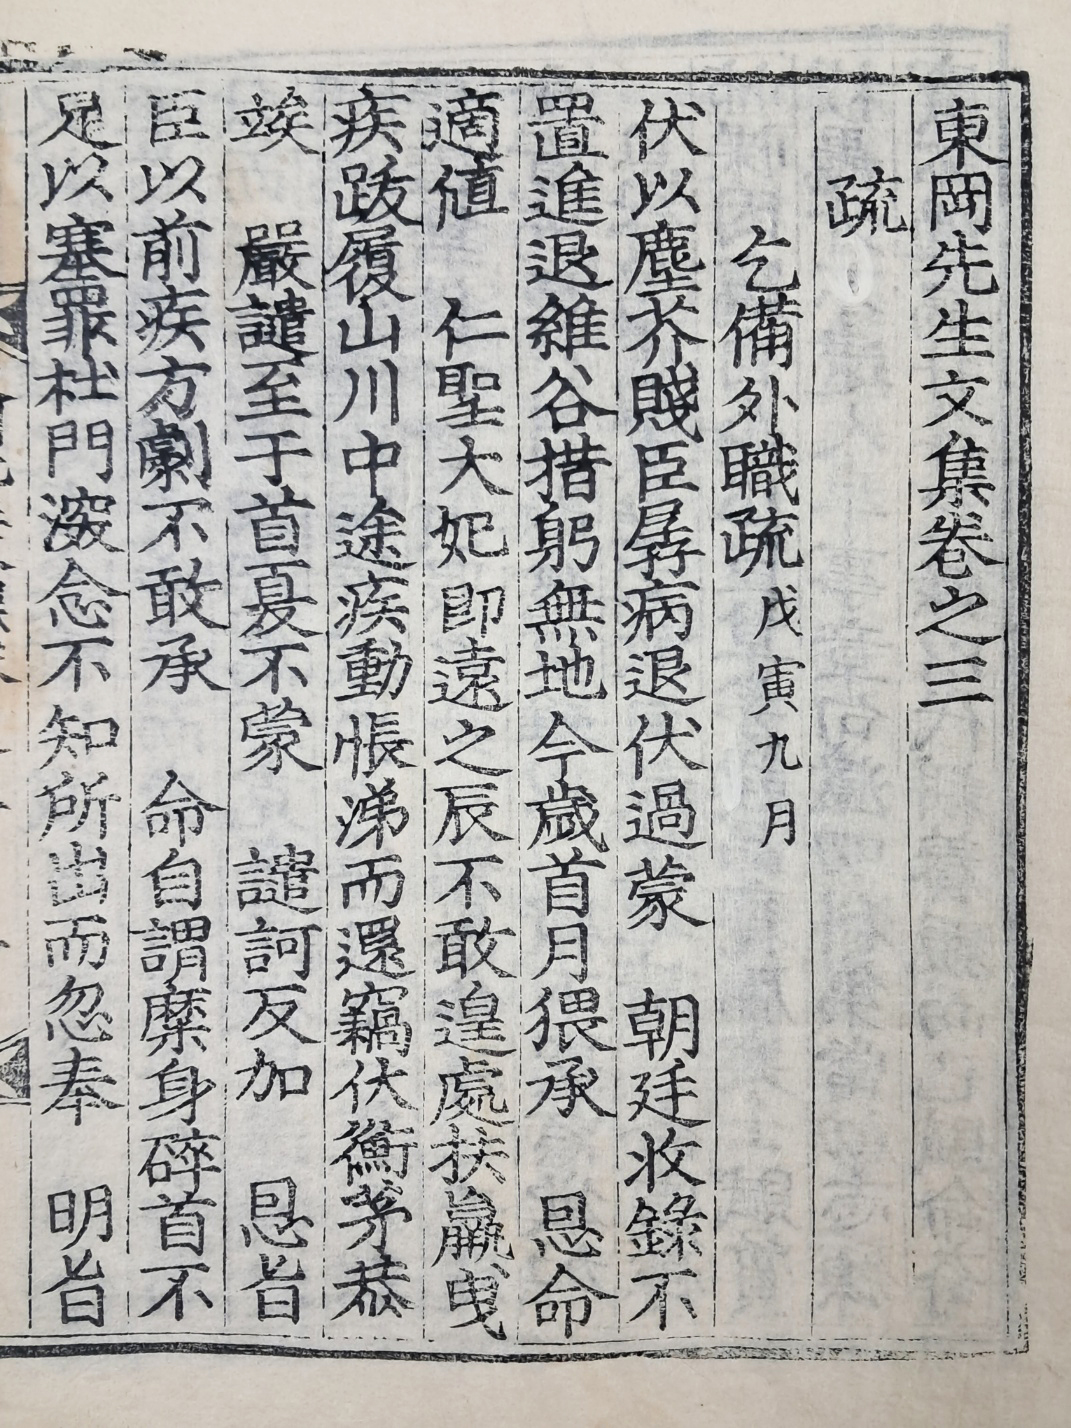 東岡先生文集卷之三
疏
乞備外職疏 戊寅九月
伏以塵芥賤臣孱病退伏過蒙 朝廷收錄不
置進退維谷措躬無地今歲首月猥承 恩命
適値 仁聖大妃卽遠之辰不敢遑處扶羸曳
疾跋履山川中途疾動悵涕而還竊伏衡茅恭
竢 嚴譴至于首夏不蒙 譴訶反加 恩旨
臣以前疾方劇不敢承 命自謂糜身碎首不
足以塞罪杜門滾念不知所出而忽奉 明旨